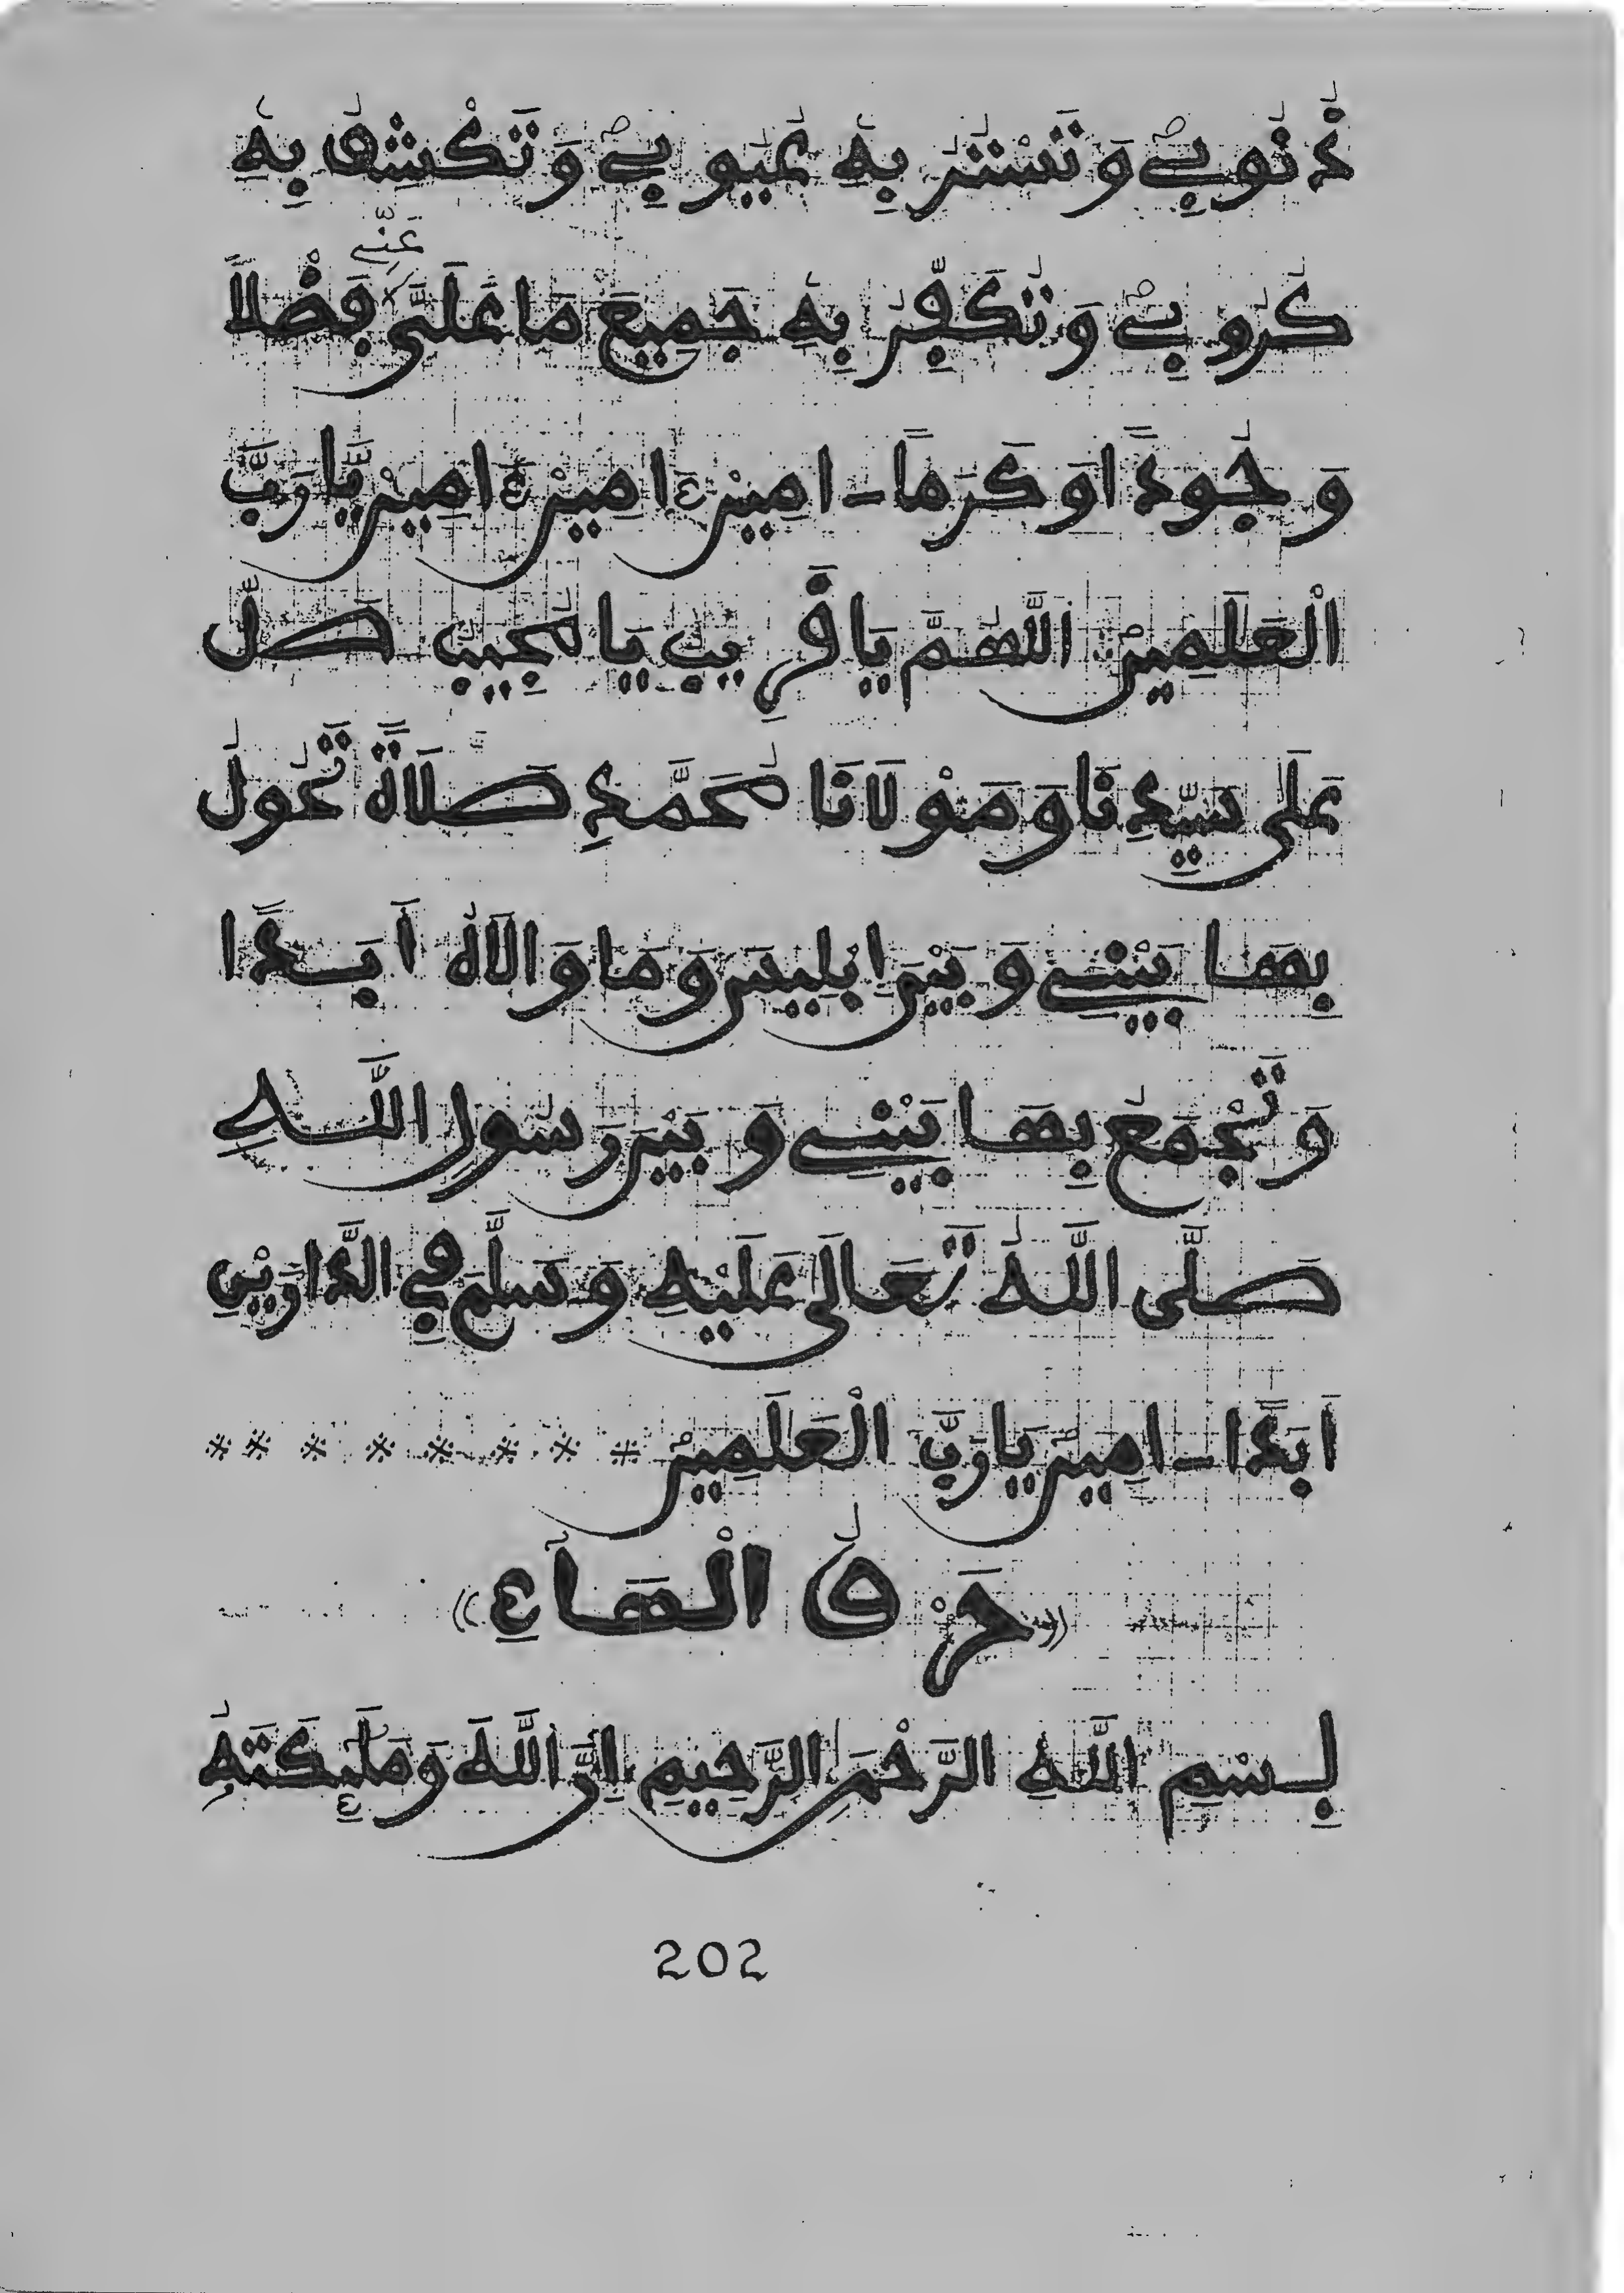 ذُنُوبِي وَتَسْتُرُ بِهِ عُيُوبِي وَتَكْشِفُ بِهِ
عَنِّي
كُرُوبِي وَتُكَفِّرُ بِهِ جَمِيعَ مَا عَلَيَّ فَضْلاً
وَجُوداً وَكَرَماً - امِين ءَامِين ءَامِين يَّا رَبَّ
الْعَلَمِين اللَّهُمَّ يَا قَرِيبُ يَا مُجِيبُ صَلِّ
عَلَى سَيِّدِنَا وَمَوْلَانَا مُحَمَّدٍ صَلَاةً تَحُولُ
بِهَا بَيْنِي وَبَيْنَ ابْلِيسَ وَمَا وَالَاهُ أَبَداً
وَتَجْمَعُ بِهَا بَيْنِي وَبَيْنَ رَسُولِ اللَّهِ
صَلَّى اللَّهُ تَعَالَى عَلَيْهِ وَسَلَّمَ فِي الدَّارَيْنِ
اَبَداً - امِينَ يَا رَبَّ الْعَلَمِين * * * * * * * *
((حَرْفُ الْهَاءِ))
بِسْمِ اللَّهِ الرَّحْمَنِ الرَّحِيمِ اِنَّ اللَّهَ وَمَلَئِكَتَهُ
202